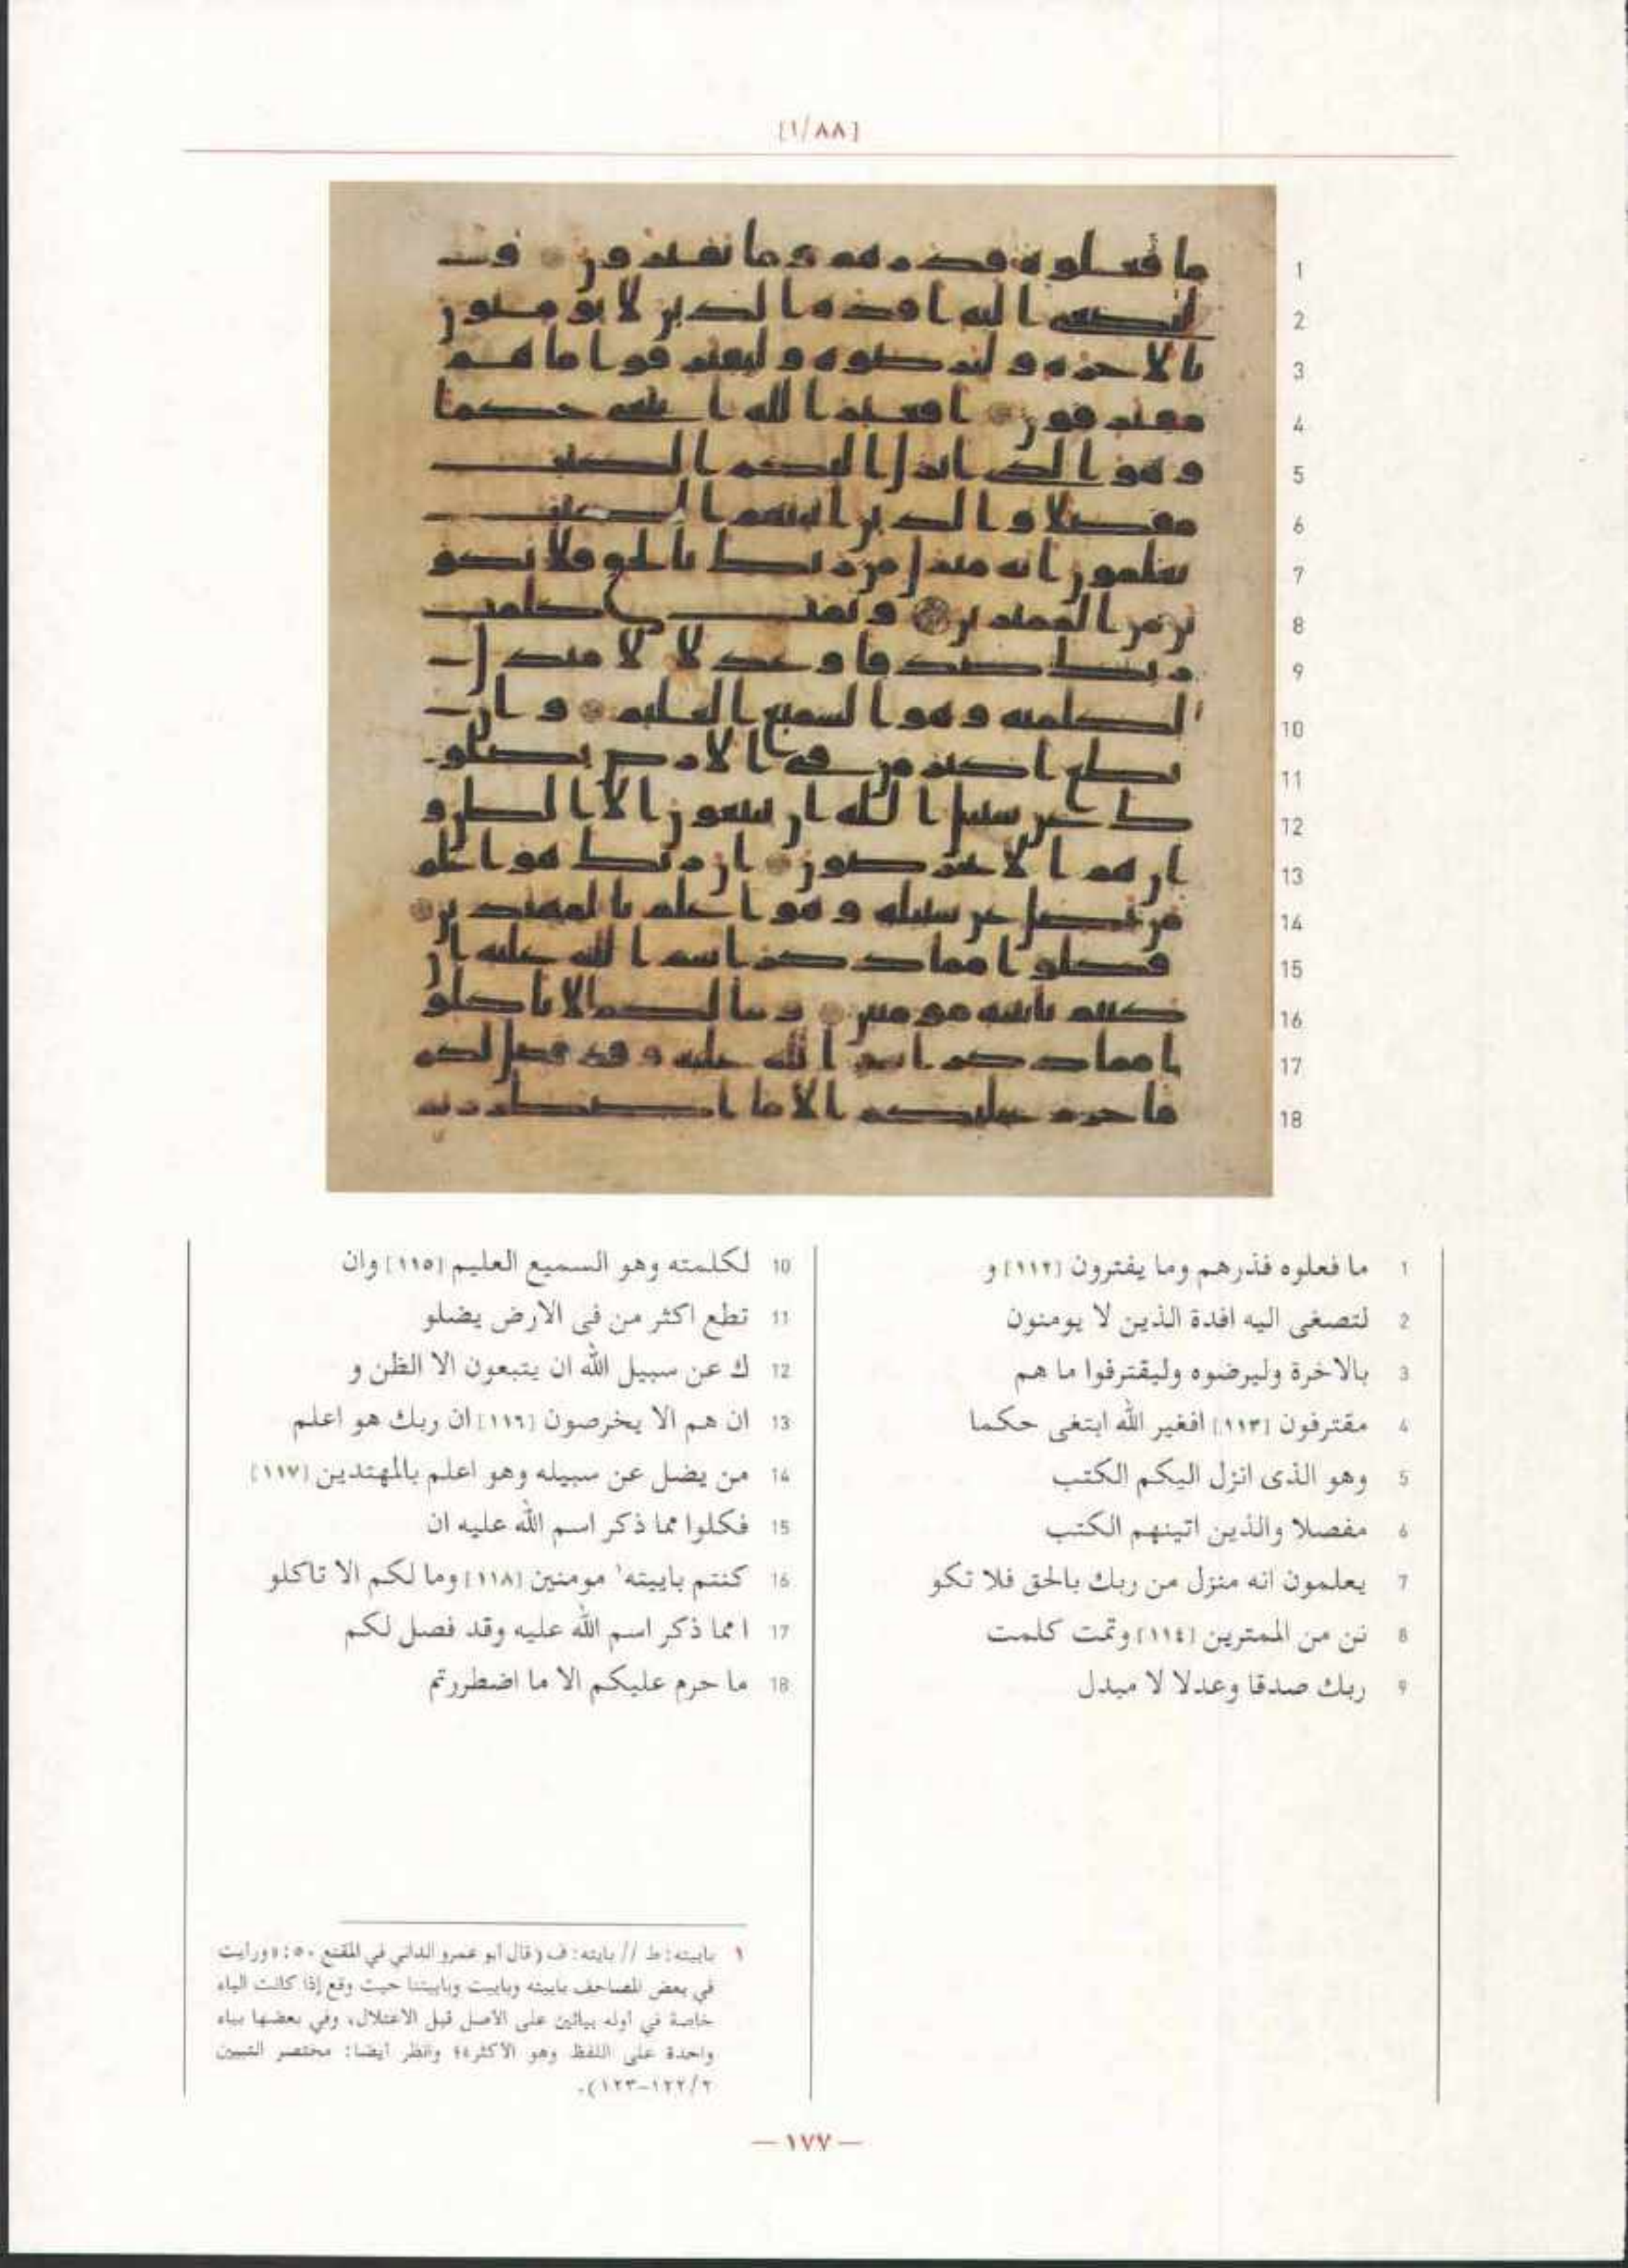 [١/٨٨]
1 ما فعلوه فذرهم وما يفترون [١١٢] و
2 لتصغى اليه افدة الذين لا يومنون
3 بالاخرة وليرضوه وليقترفوا ما هم
4 مقترفون [١١٣] افغير الله ابتغى حكما
5 وهو الذى انزل اليكم الكتب
6 مفصلا والذين اتينهم الكتب
7 يعلمون انه منزل من ربك بالحق فلا تكو
8 نن من الممترين [١١٤] وتمت كلمت
9 ربك صدقا وعدلا لا مبدل
10 لكلمته وهو السميع العليم [١١٥] وان
11 تطع اكثر من فى الارض يضلو
12 ك عن سبيل الله ان يتبعون الا الظن و
13 ان هم الا يخرصون [١١٦] ان ربك هو اعلم
14 من يضل عن سبيله وهو اعلم بالمهتدين [١١٧]
15 فكلوا مما ذكر اسم الله عليه ان
16 كنتم باييته١ مومنين [١١٨] وما لكم الا تاكلو
17 ا مما ذكر اسم الله عليه وقد فصل لكم
18 ما حرم عليكم الا ما اضطررتم
١ باييته: ط // بايته: ف (قال أبو عمرو الداني في المقنع ٥٠: «ورايت
في بعض المصاحف باييته وباييت وباييتنا حيث وقع إذا كانت الباء
خاصة في أوله بيائين على الأصل قبل الاعتلال، وفي بعضها بياء
واحدة على اللفظ وهو الأكثر»؛ وانظر أيضا: مختصر التبيين
٢/١٢٢-١٢٣).
— ١٧٧ —